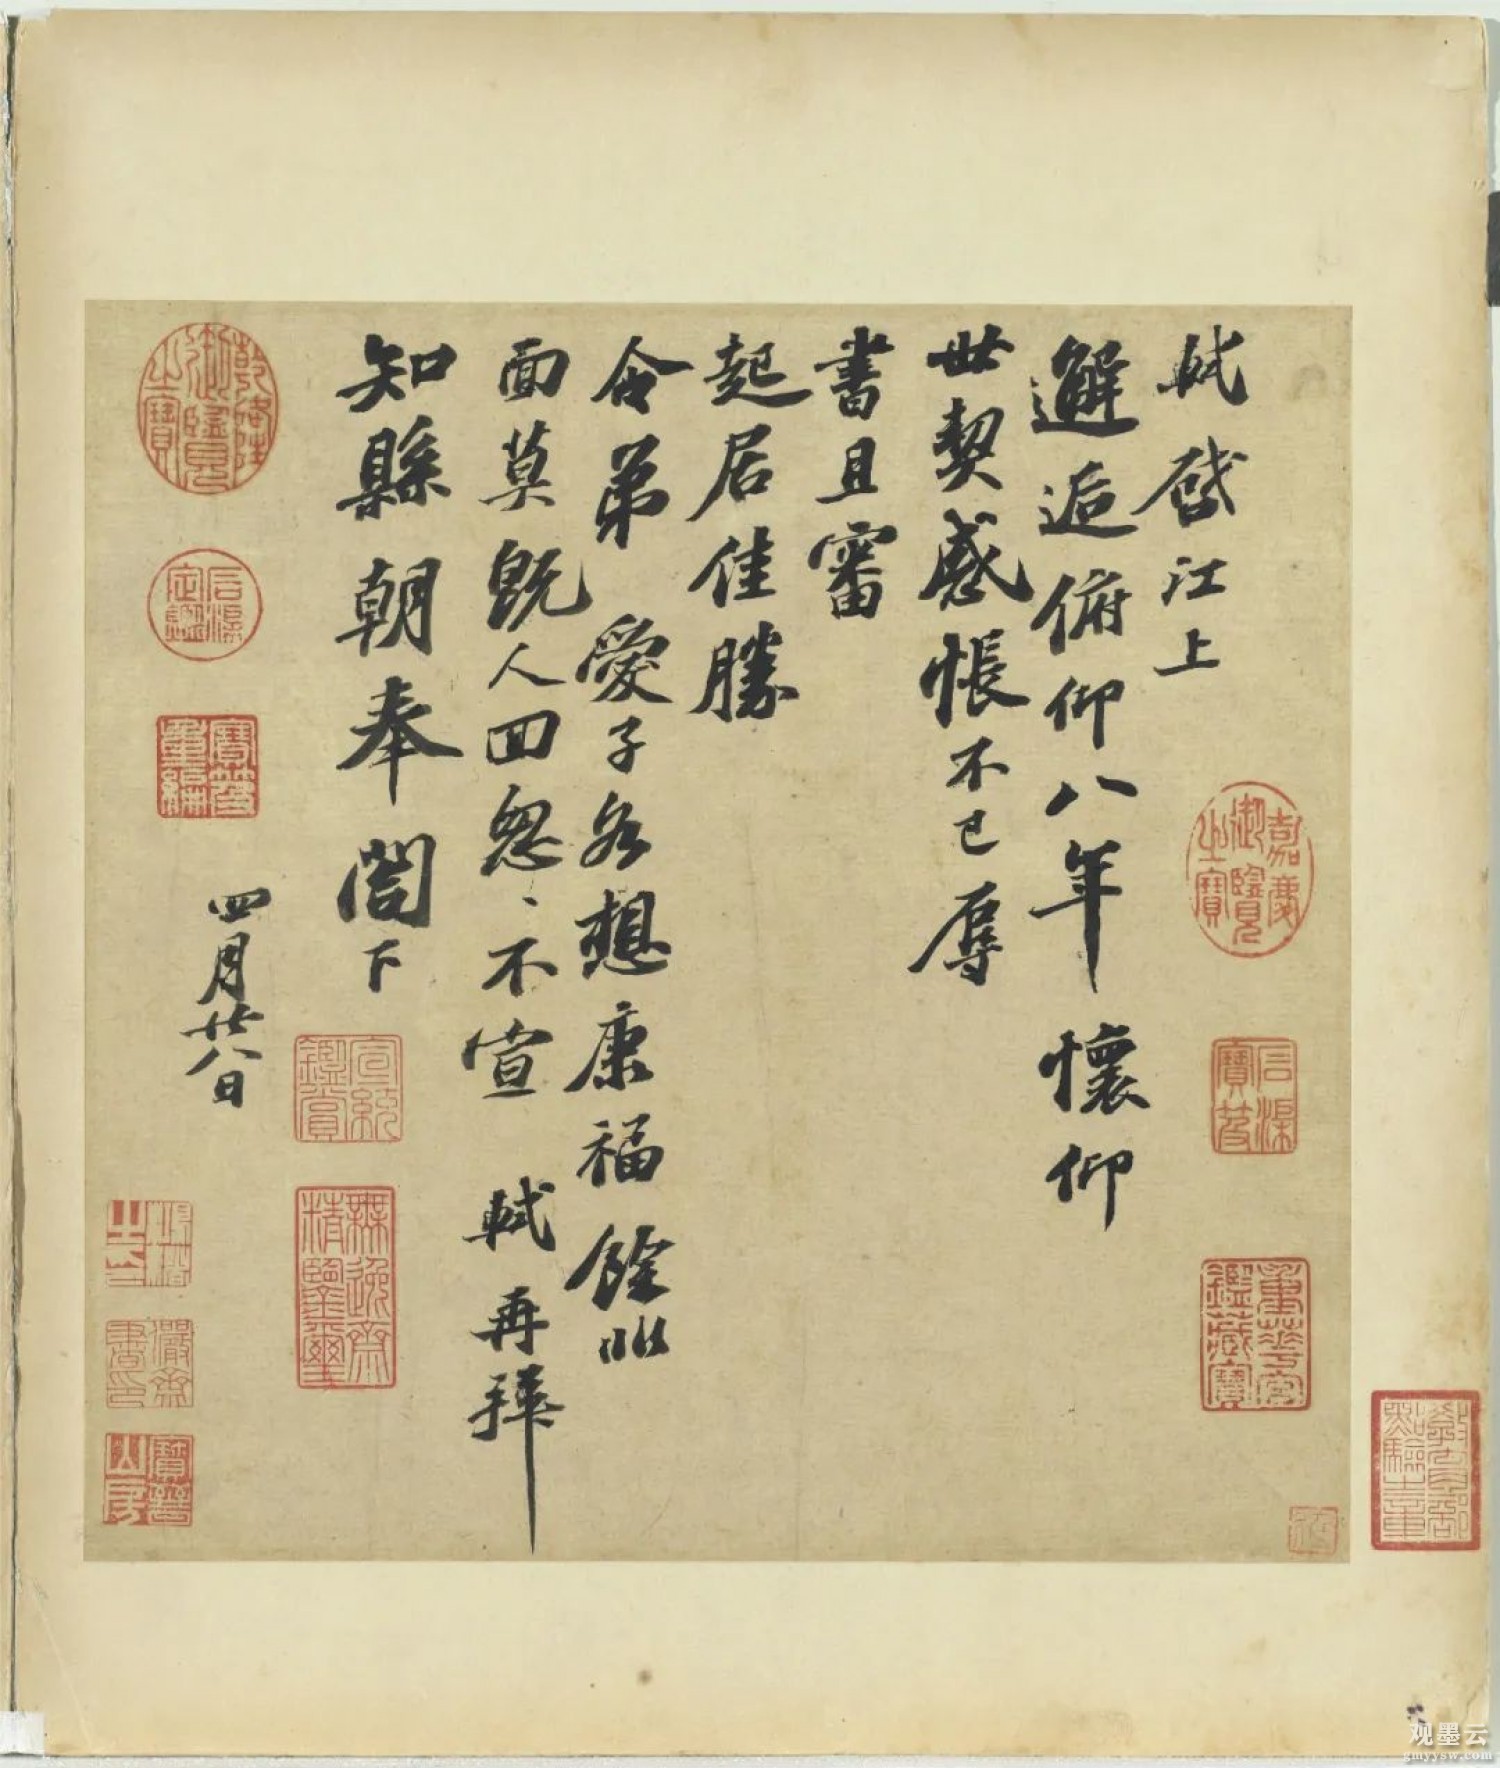 軾啓江上
邂逅俯仰八年懷仰
世契感悵不已辱
書且審
起居佳勝
令弟愛子各想康福餘非
面莫既人回怱〻不宣軾再拜
知縣朝奉閤下
四月廿八日
嘉慶御覽之寶
石渠寶笈
董華宮鑑藏寶
乾隆御覽之寶
石渠定鑑
寶笈重編
宣統鑑賞
無逸齋精鑒璽
教育部點驗之章
观墨云
gmyysw.com